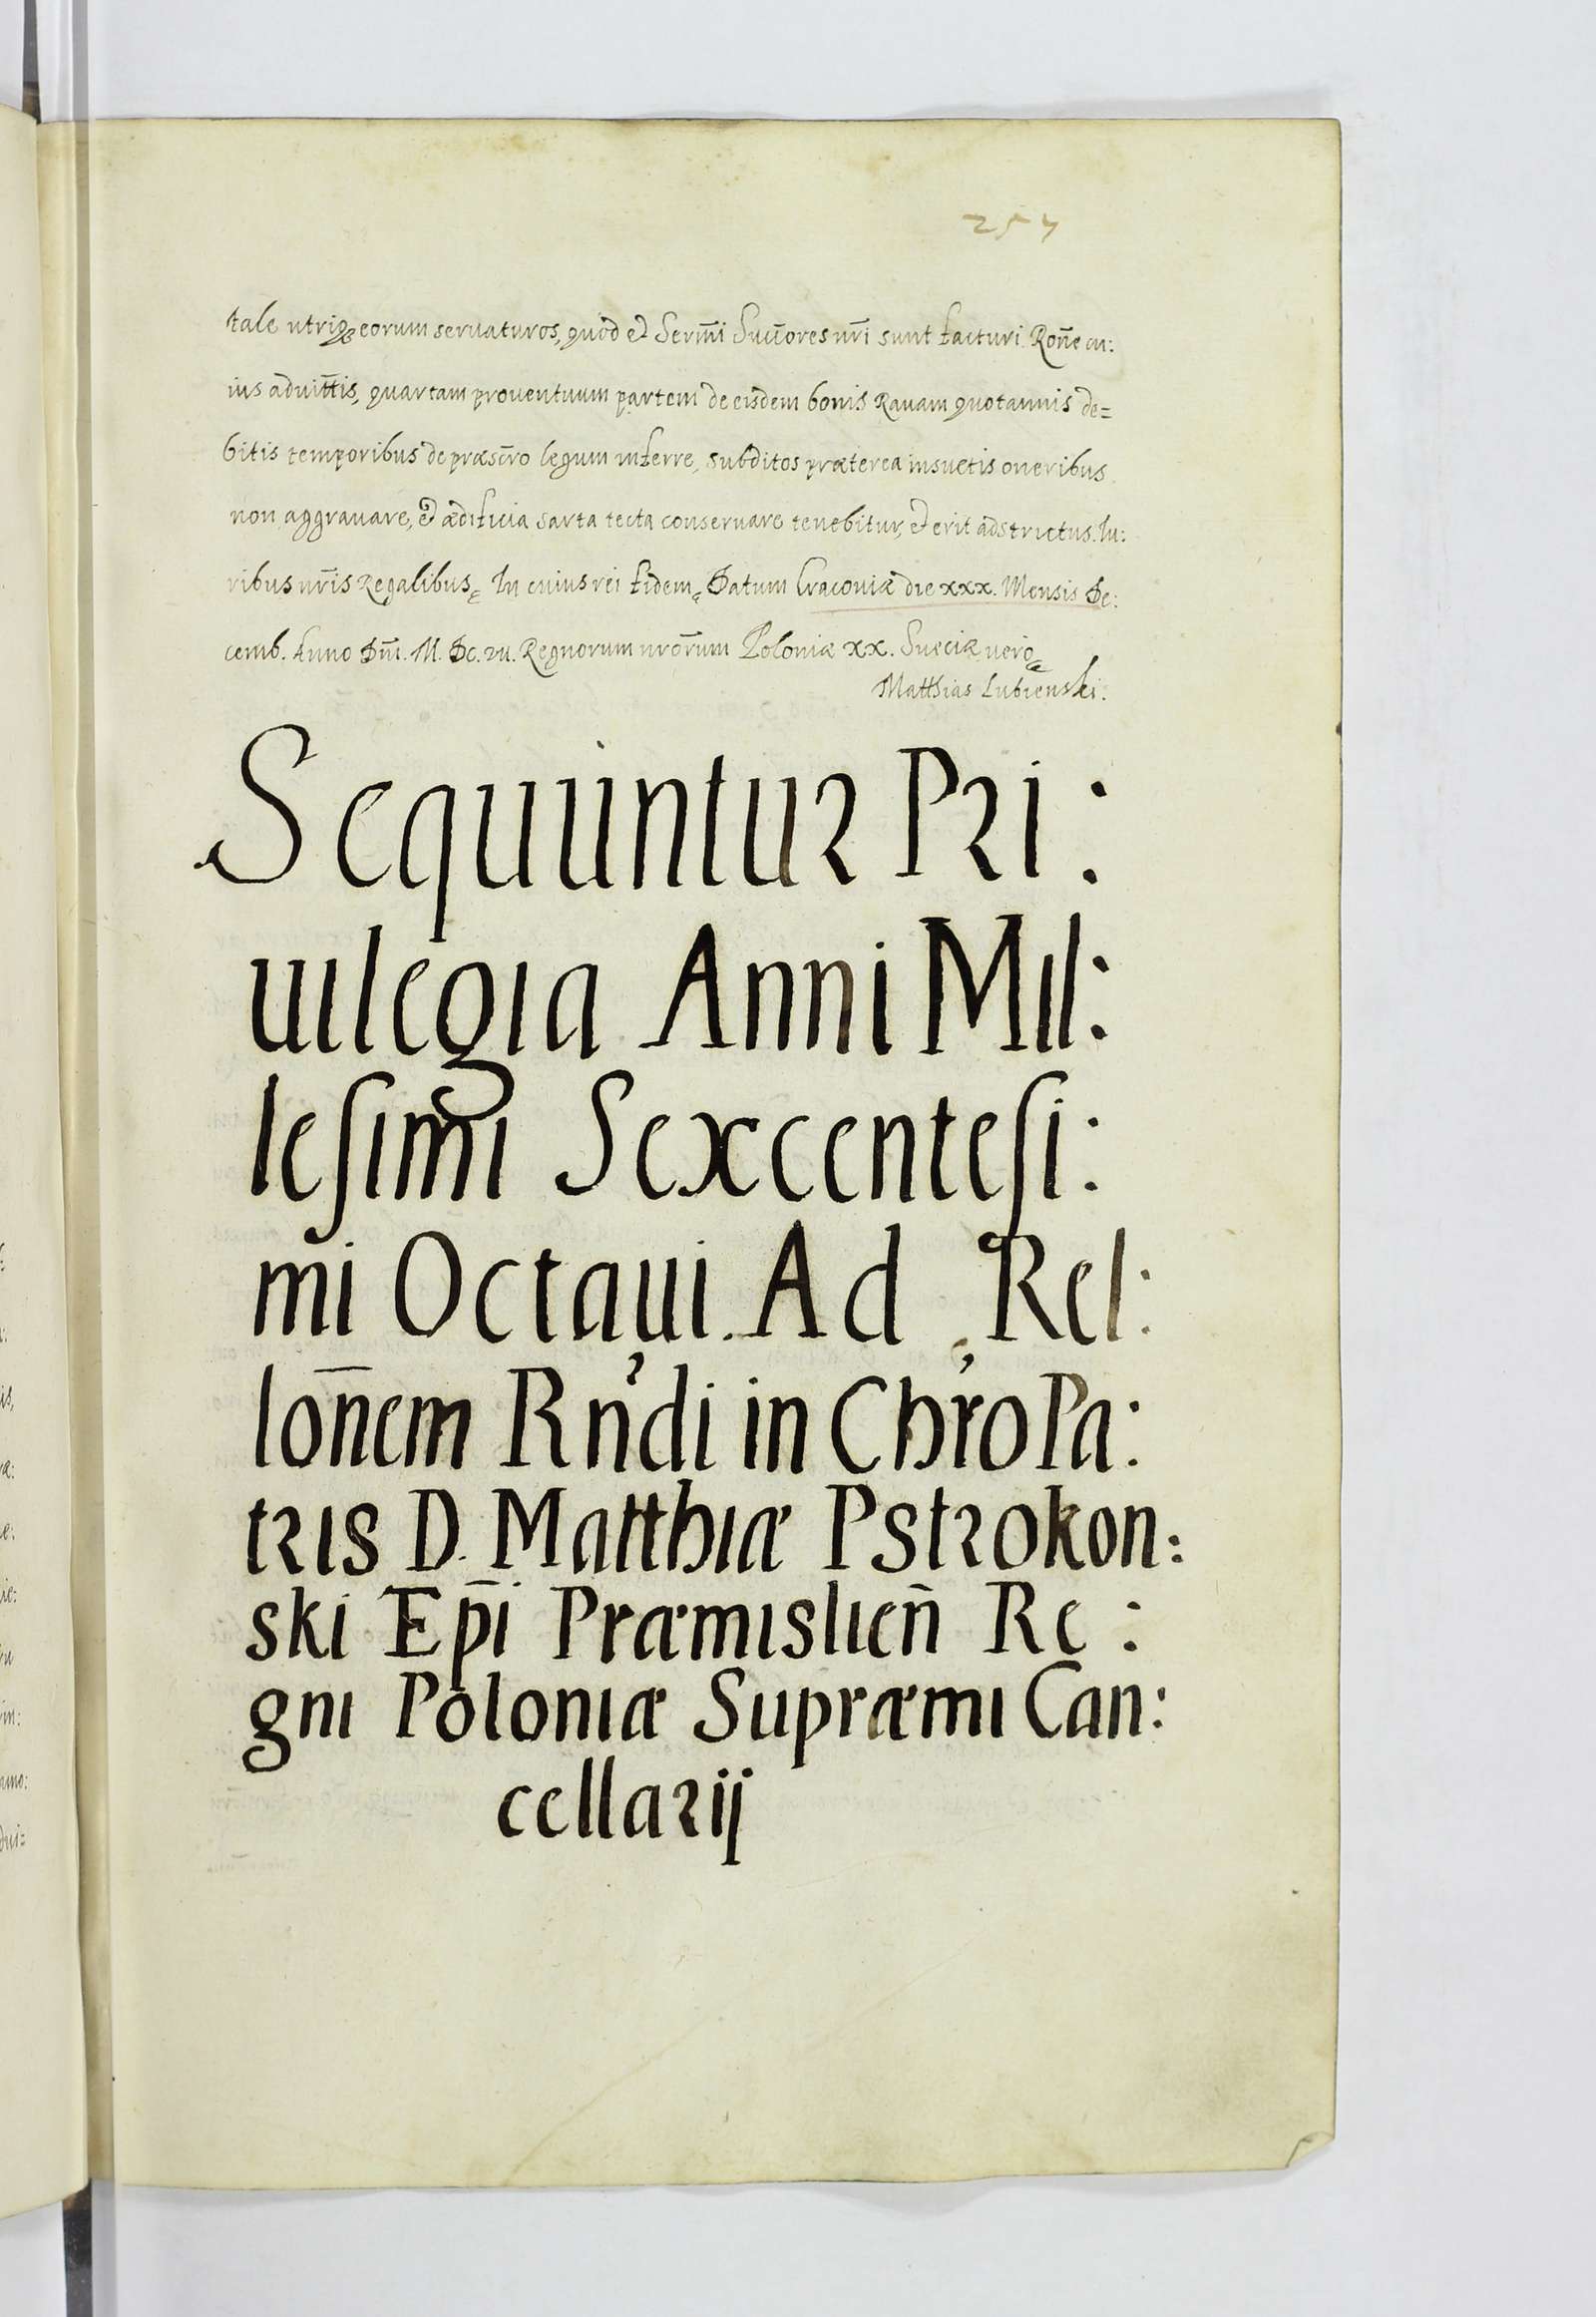 257
tale utriq₃ eorum seruaturos, quod et Serm̄i Succ̄ores nr̄i sunt facturi. Ron̄e cu:
ius aduit̄tis, quartam prouentuum partem de eisdem bonis Rauam quotannis de=
bitis temporibus de præscr̄o legum inferre, subditos præterea insuetis oneribus
non aggrauare, et ædificia sarta tecta conseruare tenebitur, et erit adstrictus. Iu:
ribus nr̄is Regalibus, In cuius rei fidem, Datum Cracoviæ die xxx. Mensis De:
cemb. Anno Dn̄i. M. Dc. vii. Regnorum nrōrum Poloniæ xx. Sueciæ vero
Matthias Lubienski.
Sequuntur Pri:
uilegia Anni Mil:
lesimi Sexcentesi:
mi Octaui. Ad Rel:
lon̄em Rn'di in Chr'o Pa:
tris D. Matthiæ Pstrokon:
ski Ep̄i Præmislien̄ Re:
gni Poloniæ Supræmi Can:
cellarij